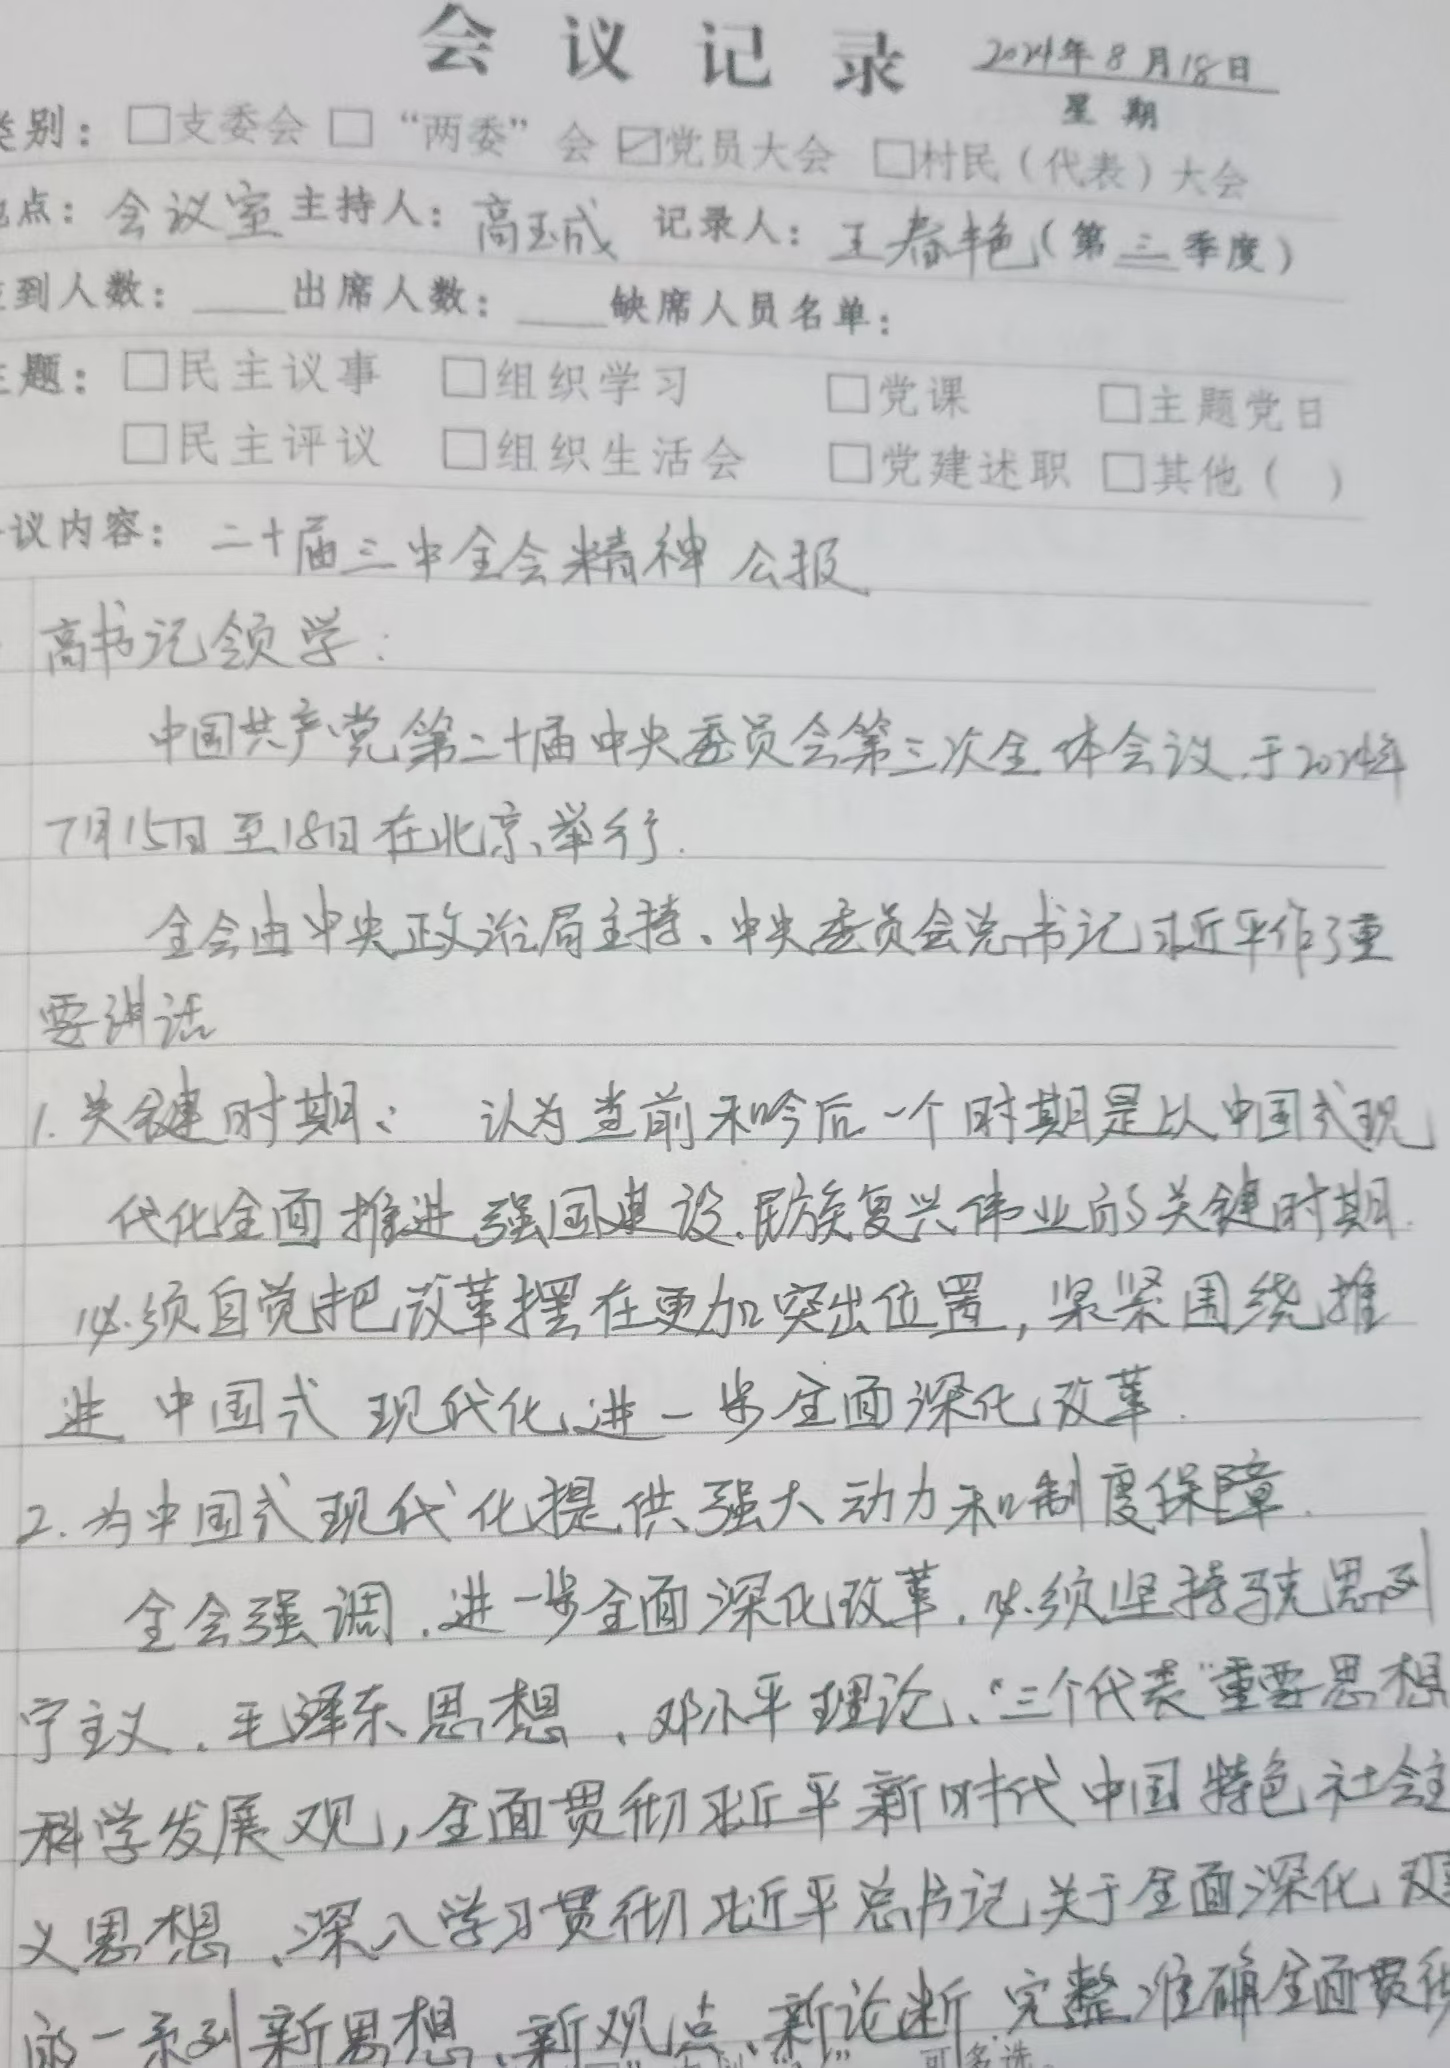 会议记录 2024年8月18日
星期
类别：□支委会 □“两委”会 ☑党员大会 □村民（代表）大会
地点：会议室 主持人：高玉成 记录人：王春艳（第三季度）
到人数：____出席人数：____缺席人员名单：
主题：□民主议事 □组织学习 □党课 □主题党日
□民主评议 □组织生活会 □党建述职 □其他（ ）
议内容：二十届三中全会精神 公报
高书记领学：
中国共产党第二十届中央委员会第三次全体会议，于2024年
7月15日至18日在北京举行.
全会由中央政治局主持、中央委员会总书记习近平作了重
要讲话
1. 关键时期： 认为当前和吟后一个时期是以中国式现
代化全面推进强国建设、民族复兴伟业的关键时期.
必须自觉把改革摆在更加突出位置，紧紧围绕推
进 中国式现代化进一步全面深化改革.
2. 为中国式现代化提供强大动力和制度保障.
全会强调，进一步全面深化改革，必须坚持马克思列
宁主义、毛泽东思想、邓小平理论、“三个代表”重要思想
科学发展观，全面贯彻习近平新时代中国特色社会主
义思想、深入学习贯彻习近平总书记关于全面深化改革
的一系列新思想、新观点、新论断 完整准确全面贯彻
可多选。